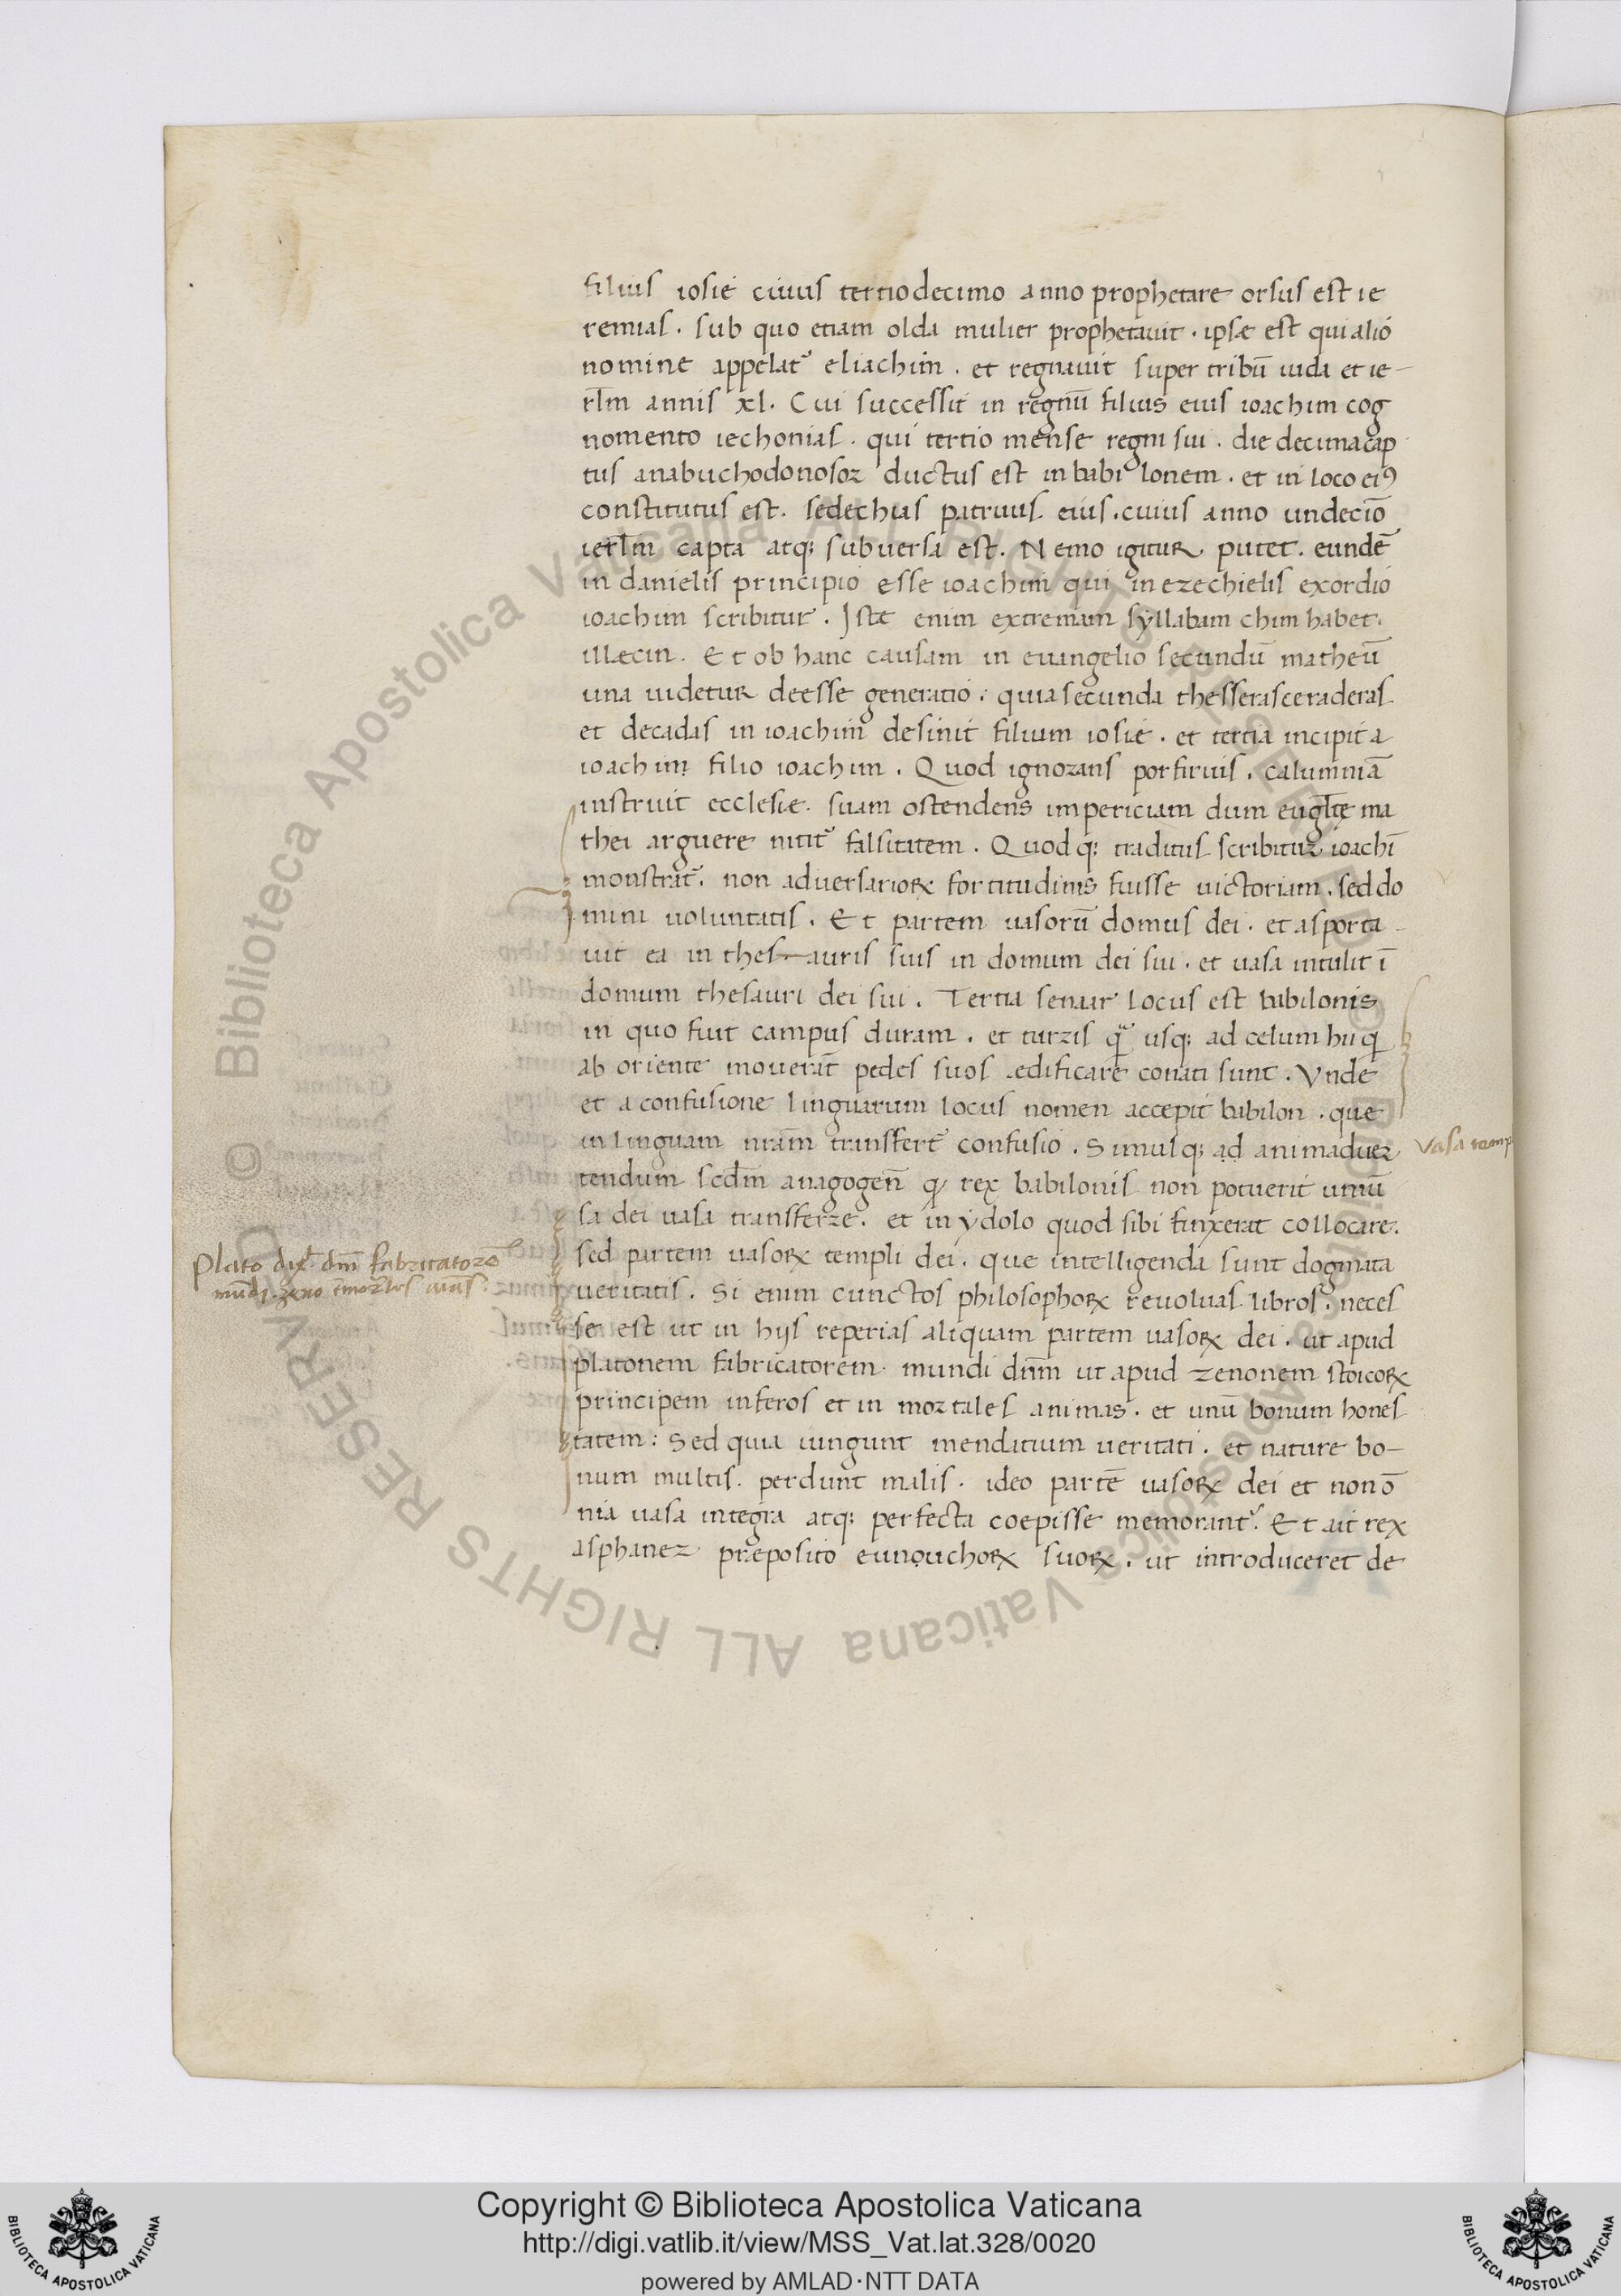 filius iosie cuius tertiodecimo anno prophetare orsus est ie
remias . sub quo etiam olda mulier prophetauit . ipse est qui alio
nomine appelat᷒ eliachim . et regnauit super tribū iuda et ie-
rl̄m annis xl . Cui successit in regnū filius eius ioachim cog
nomento iechonias . qui tertio mense regni sui . die decima cap
tus anabuchodonosor ductus est in babilonem . et in loco eiꝰ
constitutus est . sedechias patruus eius . cuius anno undecīo
ierl̄m capta atq; subuersa est . Nemo igitur putet . eundē
in danielis principio esse ioachim qui in ezechielis exordio
ioachim scribitur . Iste enim extremam syllabam chim habet .
ille cin . Et ob hanc causam in euangelio secundū matheū
una uidetur deesse generatio . quia secunda thesserasceraderas
et decadas in ioachim desinit filium iosie . et tertia incipit a
ioachim filio ioachim . Quod ignorans porfirius . calumniā
instruit ecclesie . suam ostendens impericiam dum eugl̄te ma
thei arguere nitit᷒ falsitatem . Quodq; traditus scribitur ioachī
monstrat᷒ . non aduersarioꝝ fortitudinis fuisse uictoriam . sed do
mini uoluntatis . Et partem uasorū domus dei . et asporta-
uit ea in thes-auris suis in domum dei sui . et uasa intulit ī
domum thesauri dei sui . Terra senaar locus est babilonis
in quo fuit campus duram . et turris quā usq; ad celum hii qi
ab oriente mouerāt pedes suos edificare conati sunt . Vnde
et a confusione linguarum locus nomen accepit babilon . que
in linguam nr̄am transfert᷒ confusio . Simulq; ad animaduer
tendum scd̄m anagogen̄ ꝙ rex babilonis non potuerit uniū
sa dei uasa transferre . et in ydolo quod sibi finxerat collocare .
sed partem uasoꝝ templi dei . que intelligenda sunt dogmata
ueritatis . Si enim cunctos philosophoꝝ reuoluas libros . neces
se est ut in hijs reperias aliquam partem uasoꝝ dei . ut apud
platonem fabricatorem mundi dn̄m ut apud zenonem stoicoꝝ
principem inferos et in mortales animas . et unū bonum hones
tatem : Sed quia iungunt mendatium ueritati . et nature bo-
num multis . perdunt malis . ideo partē uasoꝝ dei et non ō
nia uasa integra atq; perfecta coepisse memorant᷒ . Et ait rex
asphanez preposito eunouchoꝝ suoꝝ . ut introduceret de
uasa temp
plato dix͛ dm̄ fabricatorē
mūdi . zeno īmortles aīas .
© Biblioteca Apostolica Vaticana ALL RIGHTS RESERVED
© Biblioteca Apostolica Vaticana ALL RIGHTS RESERVED
Copyright © Biblioteca Apostolica Vaticana
http://digi.vatlib.it/view/MSS_Vat.lat.328/0020
powered by AMLAD·NTT DATA
BIBLIOTECA APOSTOLICA VATICANA
BIBLIOTECA APOSTOLICA VATICANA